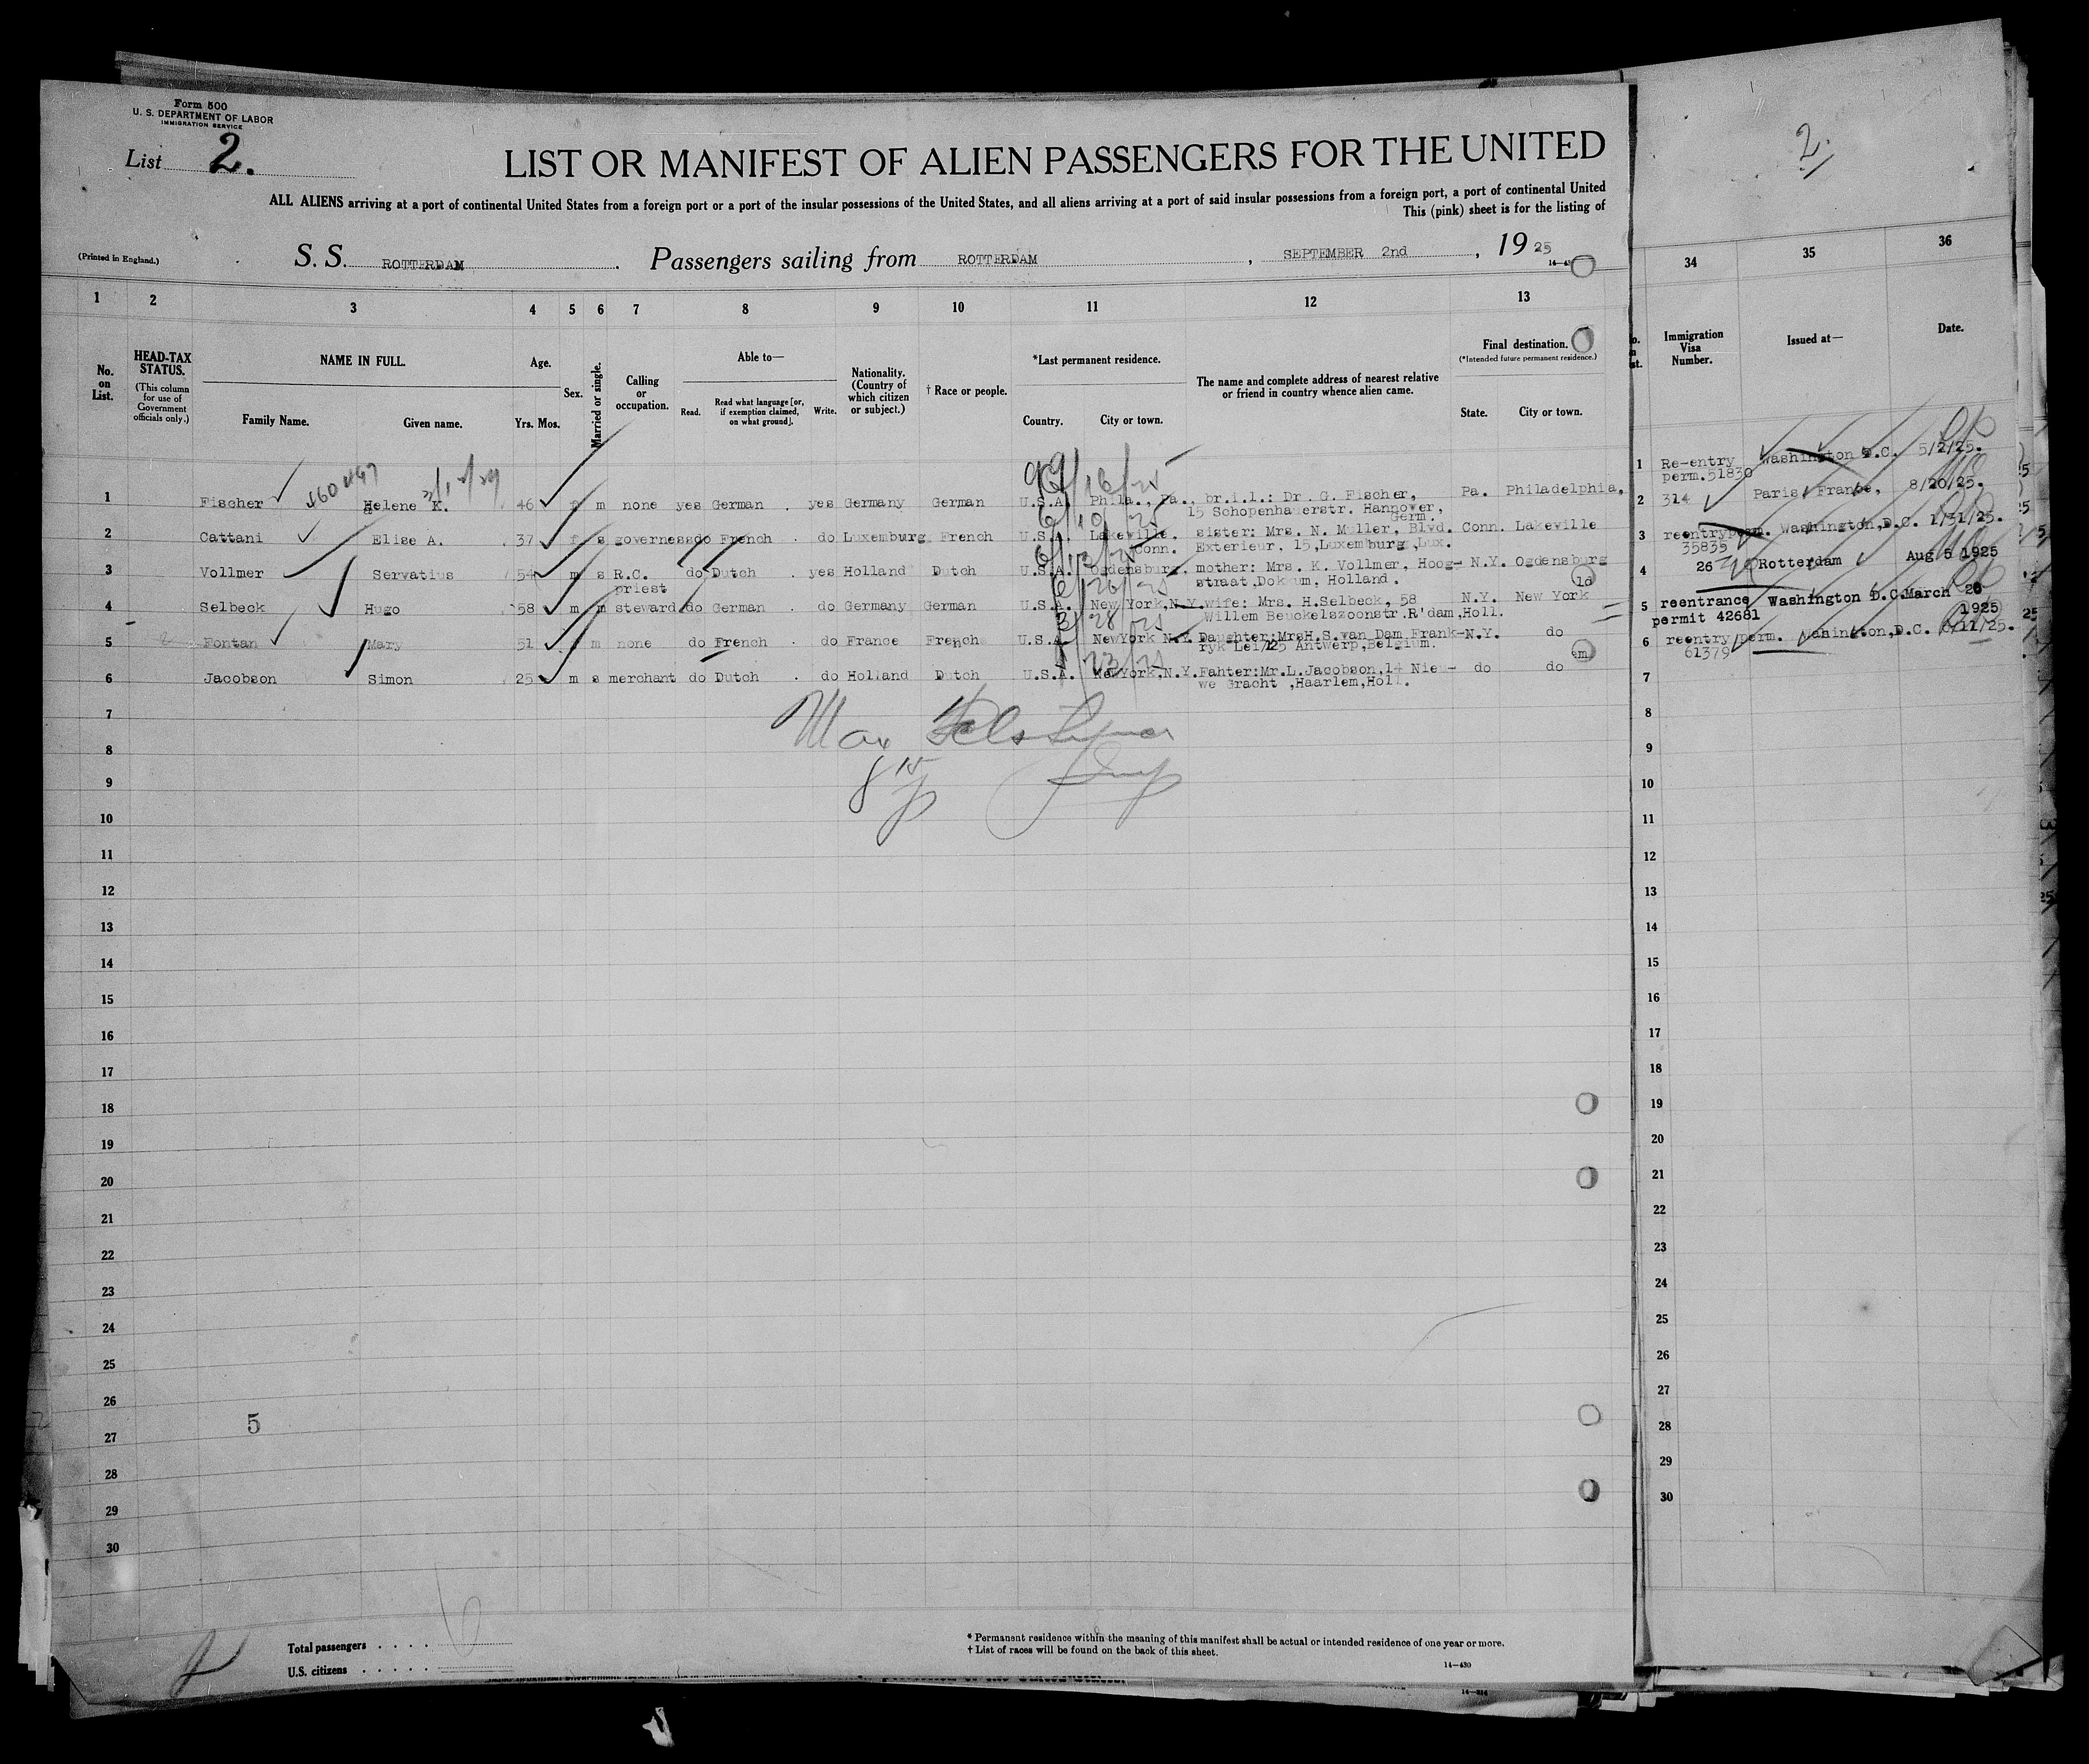 Form 500
U. S. DEPARTMENT OF LABOR
IMMIGRATION SERVICE
List 2.
LIST OR MANIFEST OF ALIEN PASSENGERS FOR THE UNITED
ALL ALIENS arriving at a port of continental United States from a foreign port or a port of the insular possessions of the United States, and all aliens arriving at a port of said insular possessions from a foreign port, a port of continental United
This (pink) sheet is for the listing of
(Printed in England.)
S. S. ROTTERDAM . Passengers sailing from ROTTERDAM , SEPTEMBER 2nd , 19 25
1 2 3 4 5 6 7 8 9 10 11 12 13
No. on List.
HEAD-TAX STATUS.
(This column for use of Government officials only.)
NAME IN FULL.
Family Name. Given name.
Age.
Yrs. Mos.
Sex.
Married or single.
Calling or occupation.
Able to—
Read. Read what language [or, if exemption claimed, on what ground]. Write.
Nationality. (Country of which citizen or subject.)
† Race or people.
*Last permanent residence.
Country. City or town.
The name and complete address of nearest relative or friend in country whence alien came.
Final destination.
(*Intended future permanent residence.)
State. City or town.
1 Fischer Helene K. 46 f m none yes German yes Germany German U.S.A. Phila., Pa., br.i.l.: Dr. G. Fischer, Pa. Philadelphia,
15 Schopenhauerstr. Hannover,
Germ.
2 Cattani Elise A. 37 f s governess do French do Luxemburg French U.S.A. Lakeville, sister: Mrs. N. Muller, Blvd. Conn. Lakeville
Conn. Exterieur, 15, Luxemburg, Lux.
3 Vollmer Servatius 54 m s R.C. do Dutch yes Holland Dutch U.S.A. Ogdensburg, mother: Mrs. K. Vollmer, Hoog- N.Y. Ogdensburg
priest straat, Dokkum, Holland.
4 Selbeck Hugo 58 m m steward do German do Germany German U.S.A. New York, N.Y. wife: Mrs. H.Selbeck, 58 N.Y. New York
Willem Beuckelszoonstr.R'dam,Holl.
5 Fontan Mary 51 f m none do French do France French U.S.A. NewYork N.Y. Daughter:MrsH.S.van Dam Frank- N.Y. do
ryk Lei/125 Antwerp,Belgium.
6 Jacobson Simon 25 m s merchant do Dutch do Holland Dutch U.S.A. NewYork,N.Y. Fahter:Mr.L.Jacobson,14 Nieu- do do
we Gracht ,Haarlem,Holl.
7
8
9
10
11
12
13
14
15
16
17
18
19
20
21
22
23
24
25
26
5
27
28
29
30
Total passengers . . . . 6
U.S. citizens . . . . .
* Permanent residence within the meaning of this manifest shall be actual or intended residence of one year or more.
† List of races will be found on the back of this sheet.
14—430
2
34 35 36
Immigration Visa Number.
Issued at—
Date.
1 Re-entry Washington D.C. 5/2/25.
perm.51830
2 314 Paris, France, 8/20/25.
3 reentryperm. Washington,D.C. 1/31/25.
35835
4 26 Rotterdam Aug 5 1925
5 reentrance Washington D.C. March 20
permit 42681 1925
6 reentry perm. Washington,D.C. /11/25.
61379
7
8
9
10
11
12
13
14
15
16
17
18
19
20
21
22
23
24
25
26
27
28
29
30